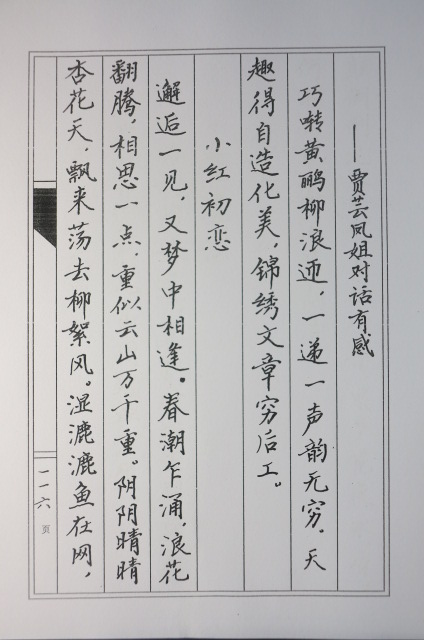 ——贾芸凤姐对话有感
巧啭黄鹂柳浪逦，一递一声韵无穷。天
趣得自造化美，锦绣文章穷后工。
小红初恋
邂逅一见，又梦中相逢。春潮乍涌，浪花
翻腾，相思一点，重似云山万千重。阴阴晴晴
杏花天，飘来荡去柳絮风。湿漉漉鱼在网，
一一六页